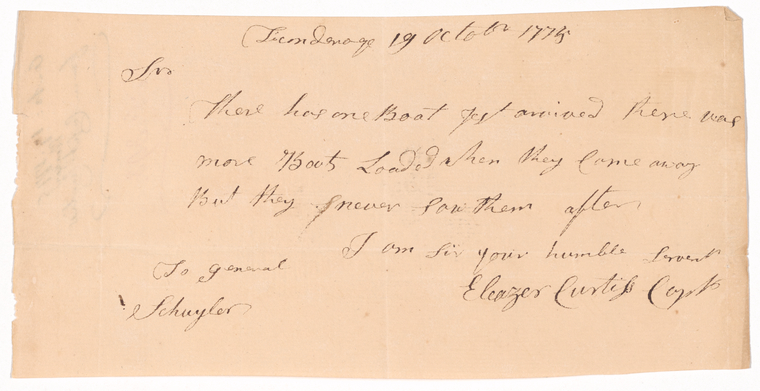 Ticonderoge 19 Octobr 1775
Sir
There has one Boat Jest arrived there was
more Boats Loaded when they Came away
But they never saw them after
I am Sir your humble Servent
Eleazer Curtiss Capt
To general
Schuyler